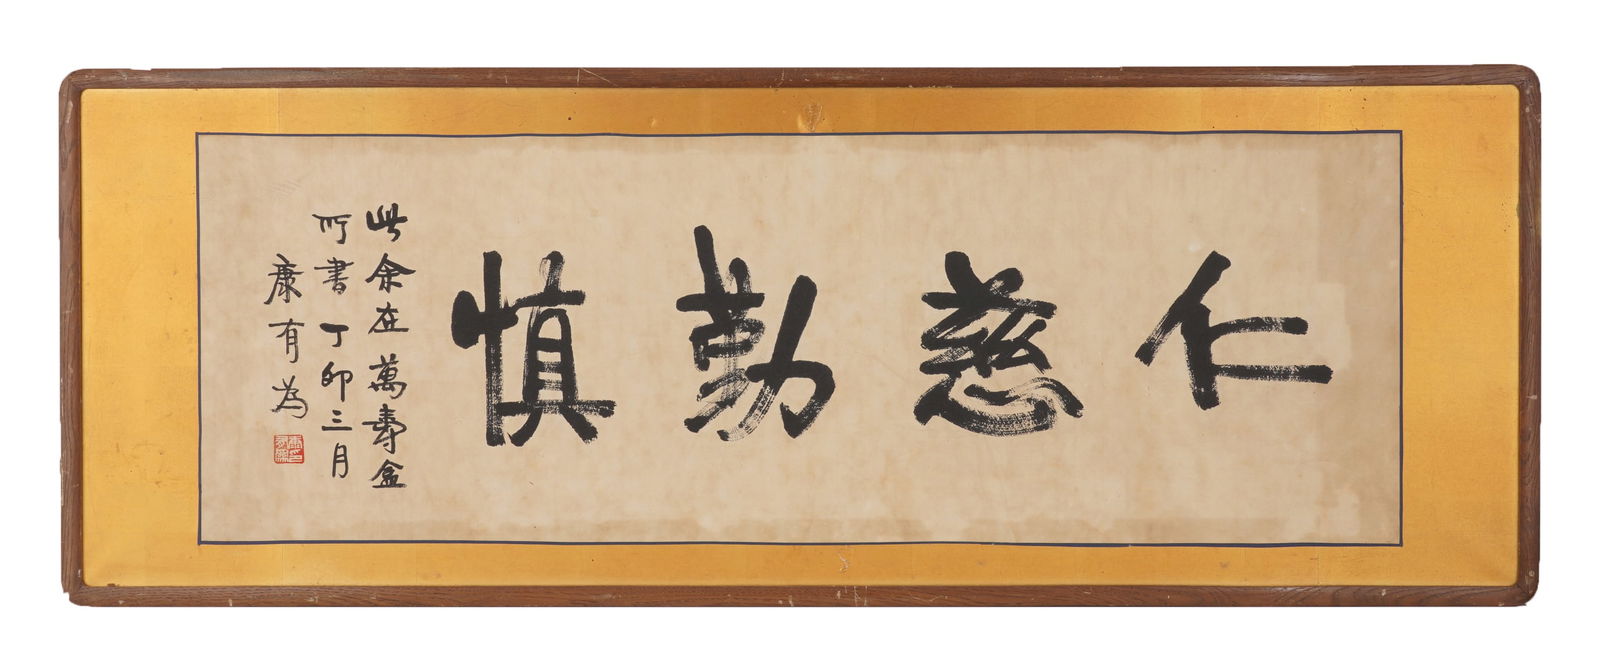 仁慈勤慎
此余在萬壽盦
所書丁卯三月
康有為